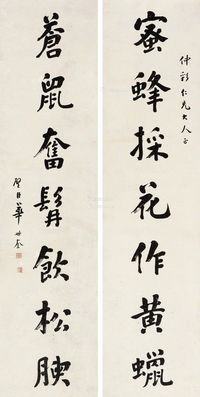 蜜蜂採花作黃蠟
仲彩仁兄大人正
蒼鼠奮髯飲松腴
華世奎